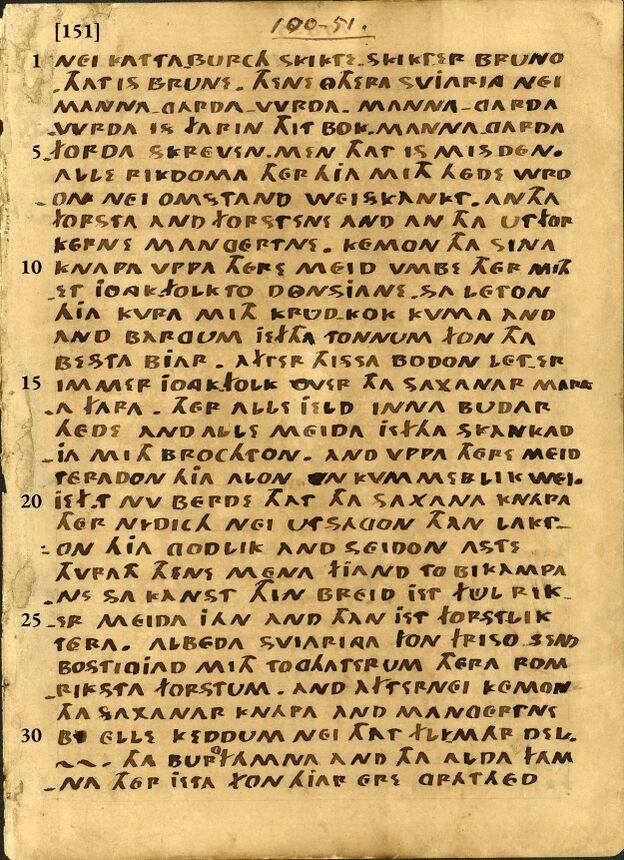 [151]
100-51.
1 NEI KATTABURCH SKIKTE. SKIKTER BRUNO
-THAT IS BRUNE. THENE OTHERA SVIARING NEI
MANNA-GARDA-VVRDA. MANNA-GARDA
-VVRDA IS FARIN THIT BOK. MANNA-GARDA
5 FORDA SKREVEN. MEN THAT IS MISDEN.
ALLE RIKDOMA THER HIA MITH HEDE WRD
-ON NEI OMSTAND WEISKANKT. AN THA
FORSTA AND FORSTENE AND AN THA UTFOR
KERNE MANGERTNE. KEMON THA SINA
10 KNAPA VPPA THERE MEID VMBE THER MITH
-ET IONGKFOLK TO DONSIANE. SA LETON
HIA KVRA MITH KRUD-KOK KVMA AND
AND BARGUM IEFTHA TONNUM FON THA
BESTA BIAR. AFTER THISSA BODON LET-ER
15 IMMER IONGKFOLK OVER THA SAXANAR MARK
-A FARA. THER ALLE IELD INNA BUDAR
HEDE AND ALLE MEIDA IEFTHA SKANKAD
-IA MITH BROCHTON. AND VPPA THERE MEID
TERADON HIA ALON ONKVMMERLIK WEI.
20 IEFT NV BERDE THAT THA SAXANA KNAPA
THER NYDICH NEI UTSAGON THAN LAKT-
-ON HIA GODLIK AND SEIDON ASTE
THVRATH THENE MENA FIAND TO BIKAMPA
-NE SA KANST THIN BREID IET FUL RIK-
25 -ER MEIDA IAN AND THAN IET FORSTLIK
TERA. ALBEDA SVIARINGA FON FRISO SEND
BOSTIGIAD MITH TOGHATERUM THERA ROM
-RIKSTA FORSTUM. AND AFTERNEI KEMON
THA SAXANAR KNAPA AND MANGERTNE
30 BI ELLE KEDDUM NEI THAT FLYMAR DEL.
~~. THA BURCHFAMNA AND THA ALDA FAM
-NA THER IETA FON HIAR ERE GRATHED